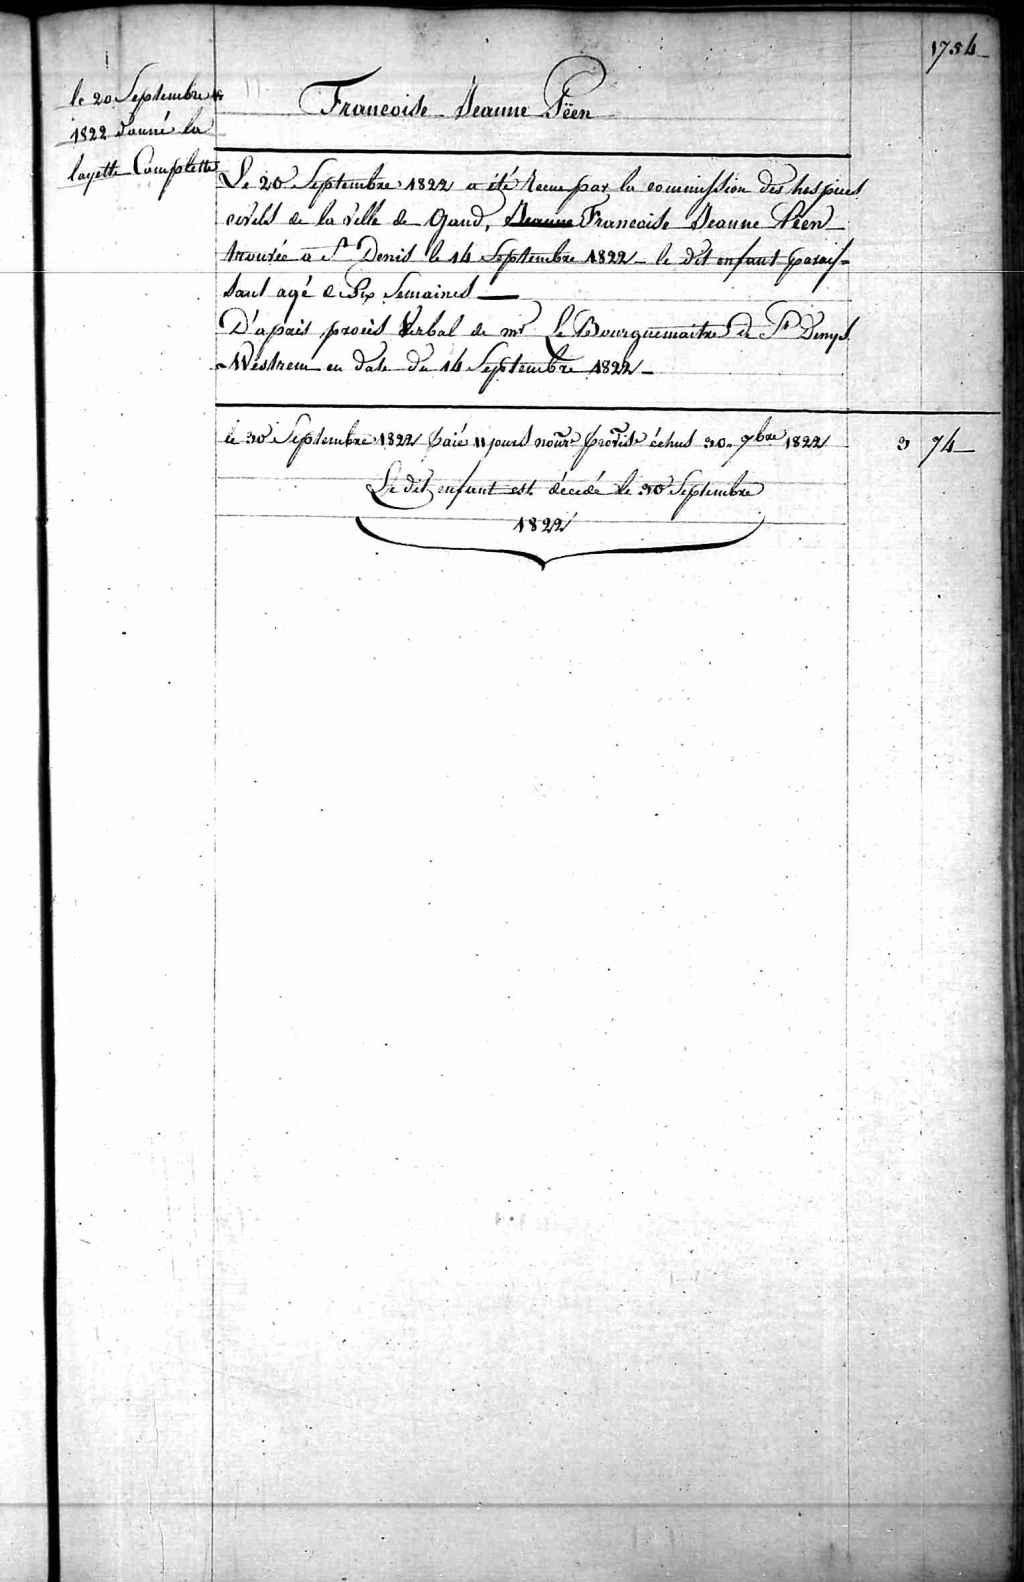 1754
le 20 Septembre
1822 donné la
layette Complette
Francoise Jeanne Pëen
Le 20 Septembre 1822 a été recue par la commission des hospices
civils de la ville de Gand, Jeanne Francoise Jeanne Pëen
trouvée a St Denis le 14 Septembre 1822 - le dit enfant parais=
sant agé de Six Semaines —
D'apais procès Verbal de mr Le Bourguemaitre de St Denys
Westrem en date du 14 Septembre 1822 -
le 30 Septembre 1822 paié 11 jours nourre provise échus 30. 7bre 1822 3 74
Le dit enfant est décedé le 30 Septembre
1822